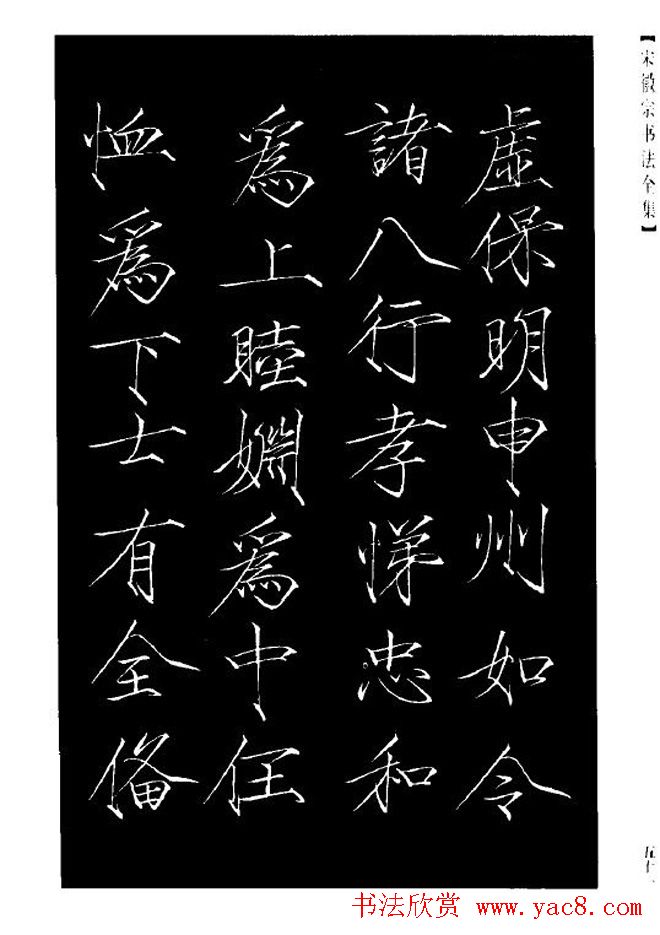 【宋徽宗书法全集】
虛保明申州如令
諸八行孝悌忠和
爲上睦婣爲中任
恤爲下士有全備
书法欣赏 www.yac8.com